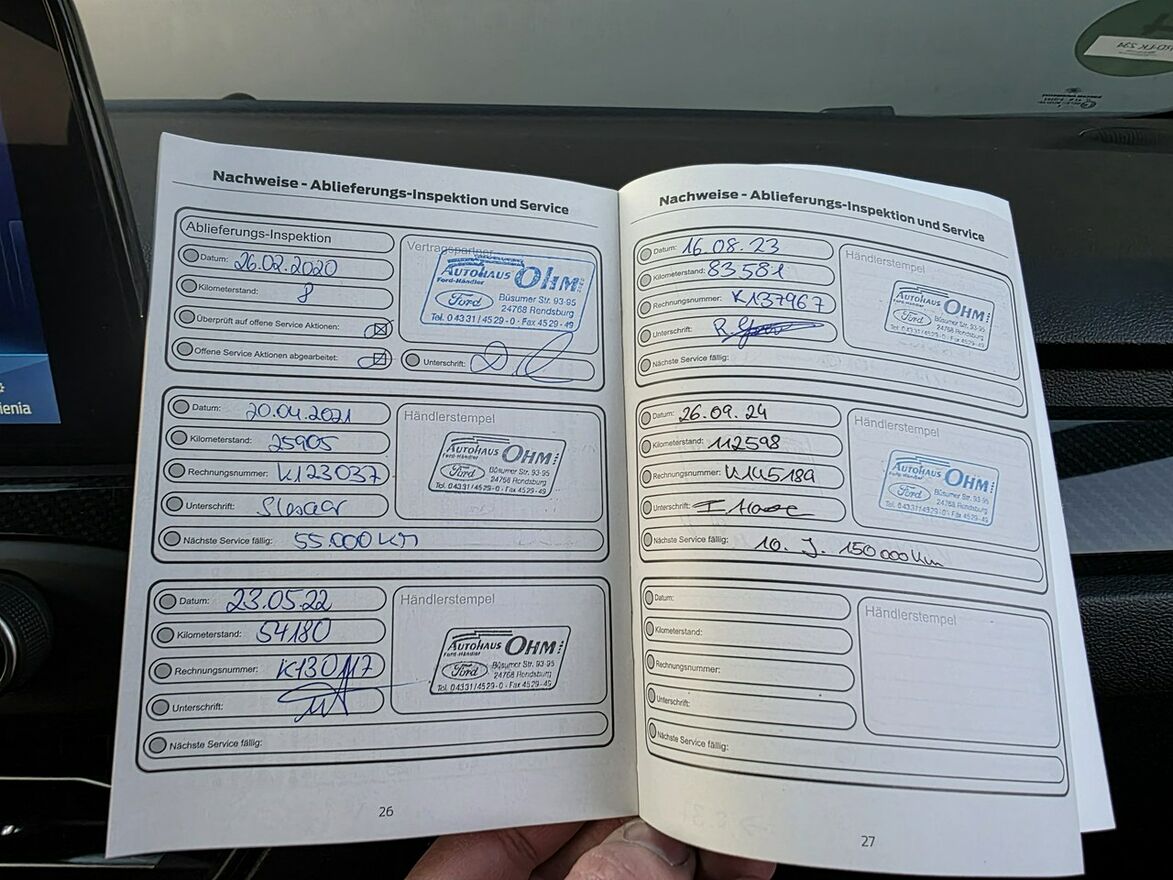 Nachweise - Ablieferungs-Inspektion und Service
Ablieferungs-Inspektion
Datum: 26.02.2020
Kilometerstand: 8
Überprüft auf offene Service Aktionen:
Offene Service Aktionen abgearbeitet:
Vertragspartner
AUTOHAUS OHM
Ford-Händler
Ford
Büsumer Str. 93-95
24768 Rendsburg
Tel. 04331/4529-0 - Fax 4529-49
Unterschrift:
Datum: 20.04.2021
Kilometerstand: 25905
Rechnungsnummer: K123037
Unterschrift:
Nächste Service fällig: 55.000 KM
Händlerstempel
AUTOHAUS OHM
Ford-Händler
Ford
Büsumer Str. 93-95
24768 Rendsburg
Tel. 04331/4529-0 - Fax 4529-49
Datum: 23.05.22
Kilometerstand: 54180
Rechnungsnummer: K130117
Unterschrift:
Nächste Service fällig:
Händlerstempel
AUTOHAUS OHM
Ford-Händler
Ford
Büsumer Str. 93-95
24768 Rendsburg
Tel. 04331/4529-0 - Fax 4529-49
26
Nachweise - Ablieferungs-Inspektion und Service
Datum: 16.08.23
Kilometerstand: 83581
Rechnungsnummer: K137967
Unterschrift:
Nächste Service fällig:
Händlerstempel
AUTOHAUS OHM
Ford-Händler
Ford
Büsumer Str. 93-95
24768 Rendsburg
Tel. 04331/4529-0 - Fax 4529-49
Datum: 26.09.24
Kilometerstand: 112598
Rechnungsnummer: K145189
Unterschrift:
Nächste Service fällig: 10. J. 150 000 Km
Händlerstempel
AUTOHAUS OHM
Ford-Händler
Ford
Büsumer Str. 93-95
24768 Rendsburg
Tel. 04331/4529-0 - Fax 4529-49
Datum:
Kilometerstand:
Rechnungsnummer:
Unterschrift:
Nächste Service fällig:
Händlerstempel
27
ienia